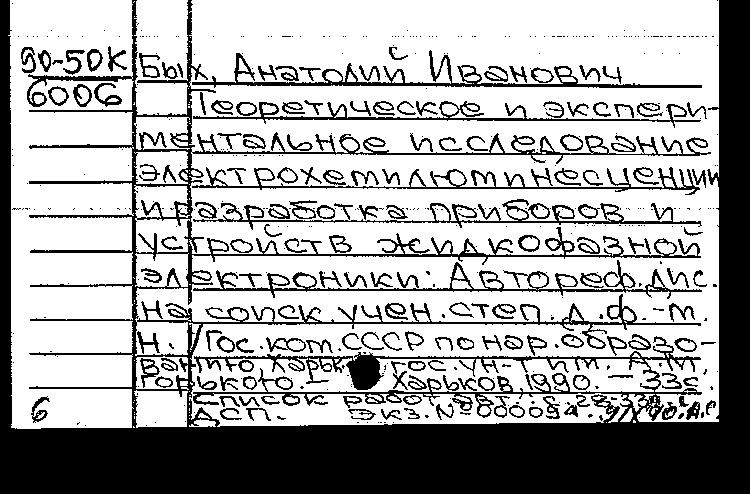 90-50К Бых, Анатолий Иванович
6006 Теоретическое и экспери-
ментальное исследование
электрохемилюминесценции
и разработка приборов и
устройств жидкофазной
электроники: Автореф. дис.
на соиск. учен. степ. д. ф.-м.
н. / Гос. ком. СССР по нар. образо-
ванию, Харьк. гос. ун-т им. А.М.
Горького. – Харьков, 1990. – 33 с.
Список работ авт.: с.
6 ДСП. Экз. № 000094.